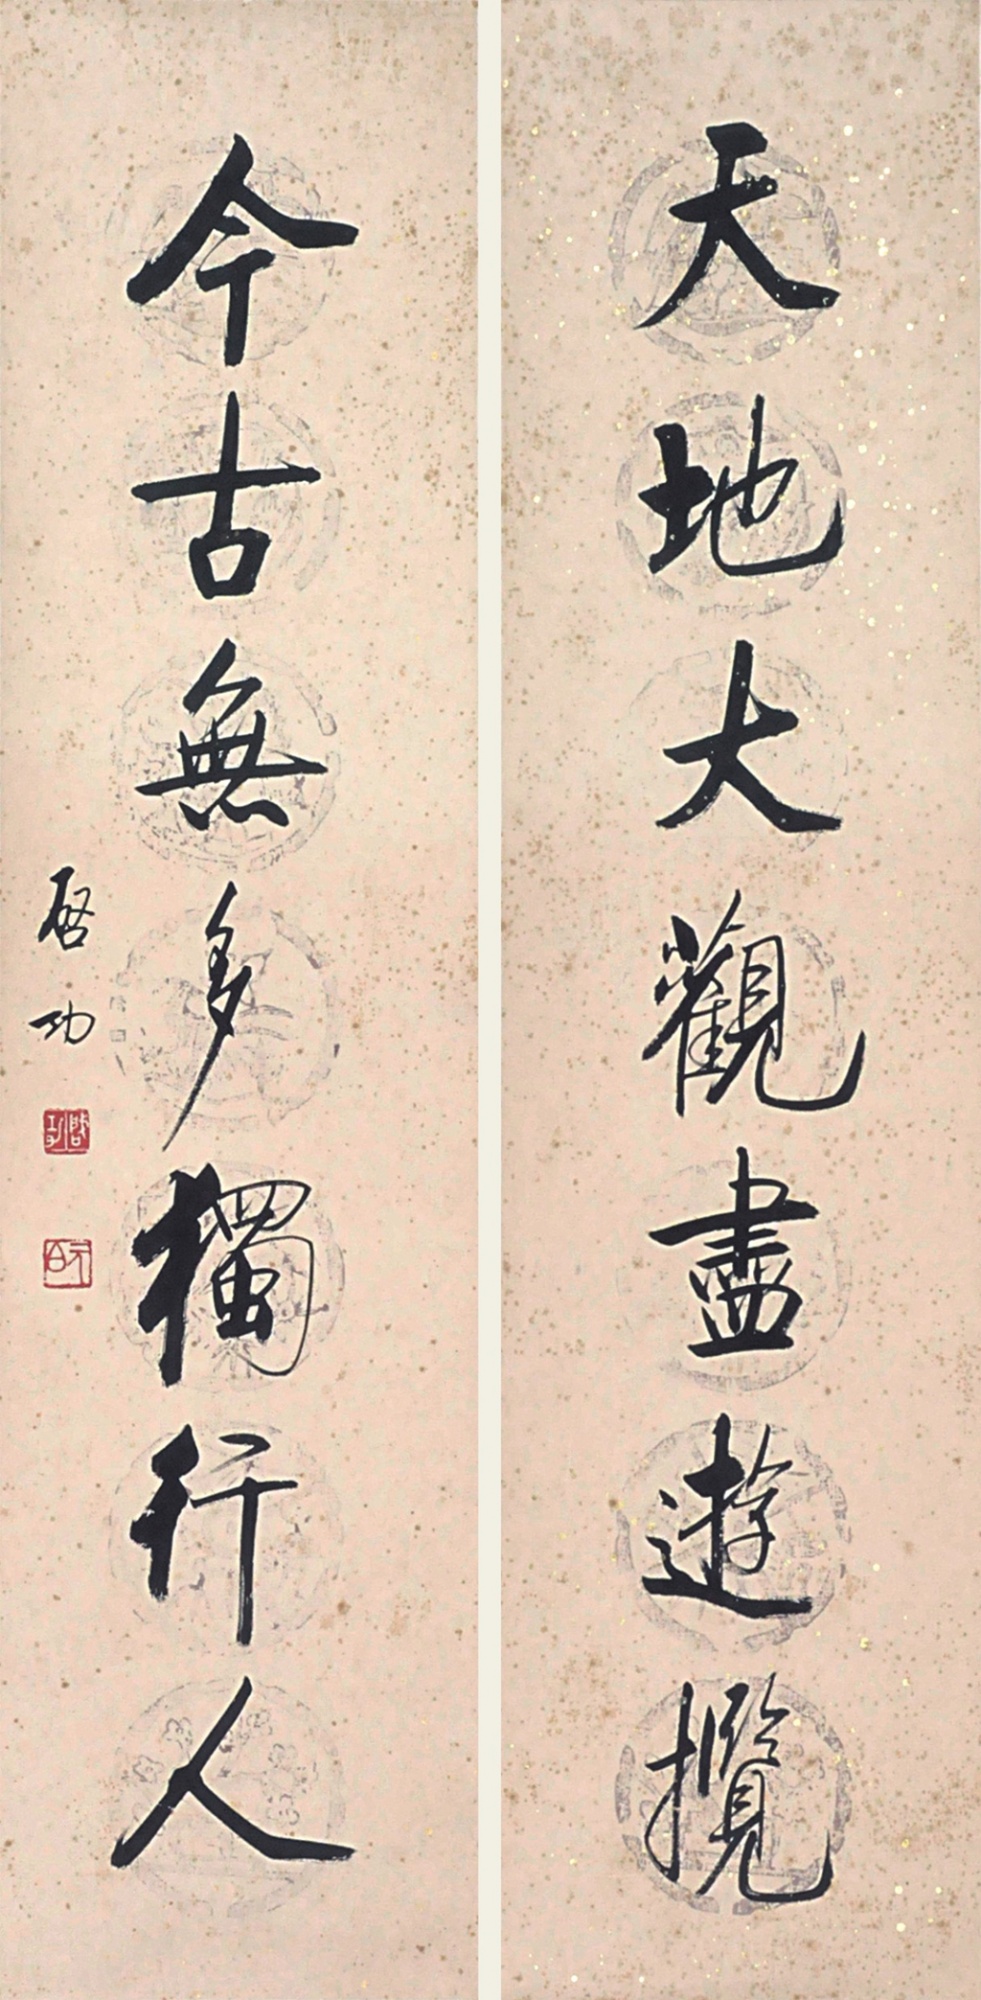 天地大觀盡遊攬
今古無多獨行人
啓功
啓功
元白